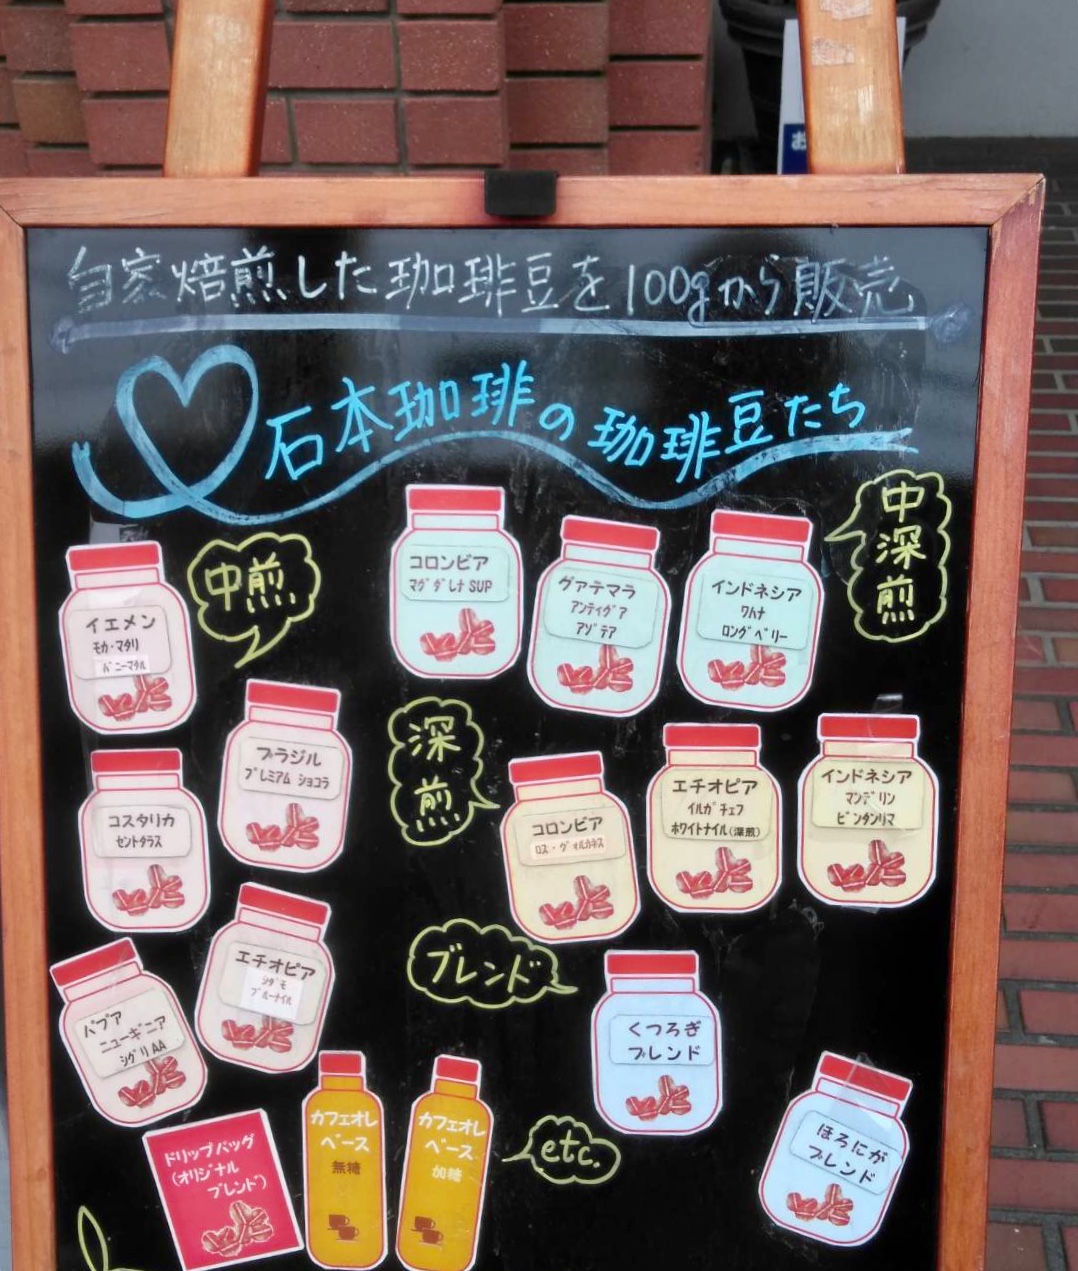 お
自家焙煎した珈琲豆を100gから販売
石本珈琲の珈琲豆たち
中煎
イエメン
モカ・マタリ
バニーマタル
ブラジル
プレミアム ショコラ
コスタリカ
セントタラス
エチオピア
シダモ
ブルーナイル
パプア
ニューギニア
シグリAA
中
深
煎
コロンビア
マグダレナ SUP
グァテマラ
アンティグア
アゾテア
インドネシア
ワハナ
ロングベリー
深
煎
コロンビア
ロス・ヴォルカネス
エチオピア
イルガチェフ
ホワイトナイル(深煎)
インドネシア
マンデリン
ビンタンリマ
ブレンド
くつろぎ
ブレンド
ほろにが
ブレンド
etc.
ドリップバッグ
(オリジナル
ブレンド)
カフェオレ
ベース
無糖
カフェオレ
ベース
加糖